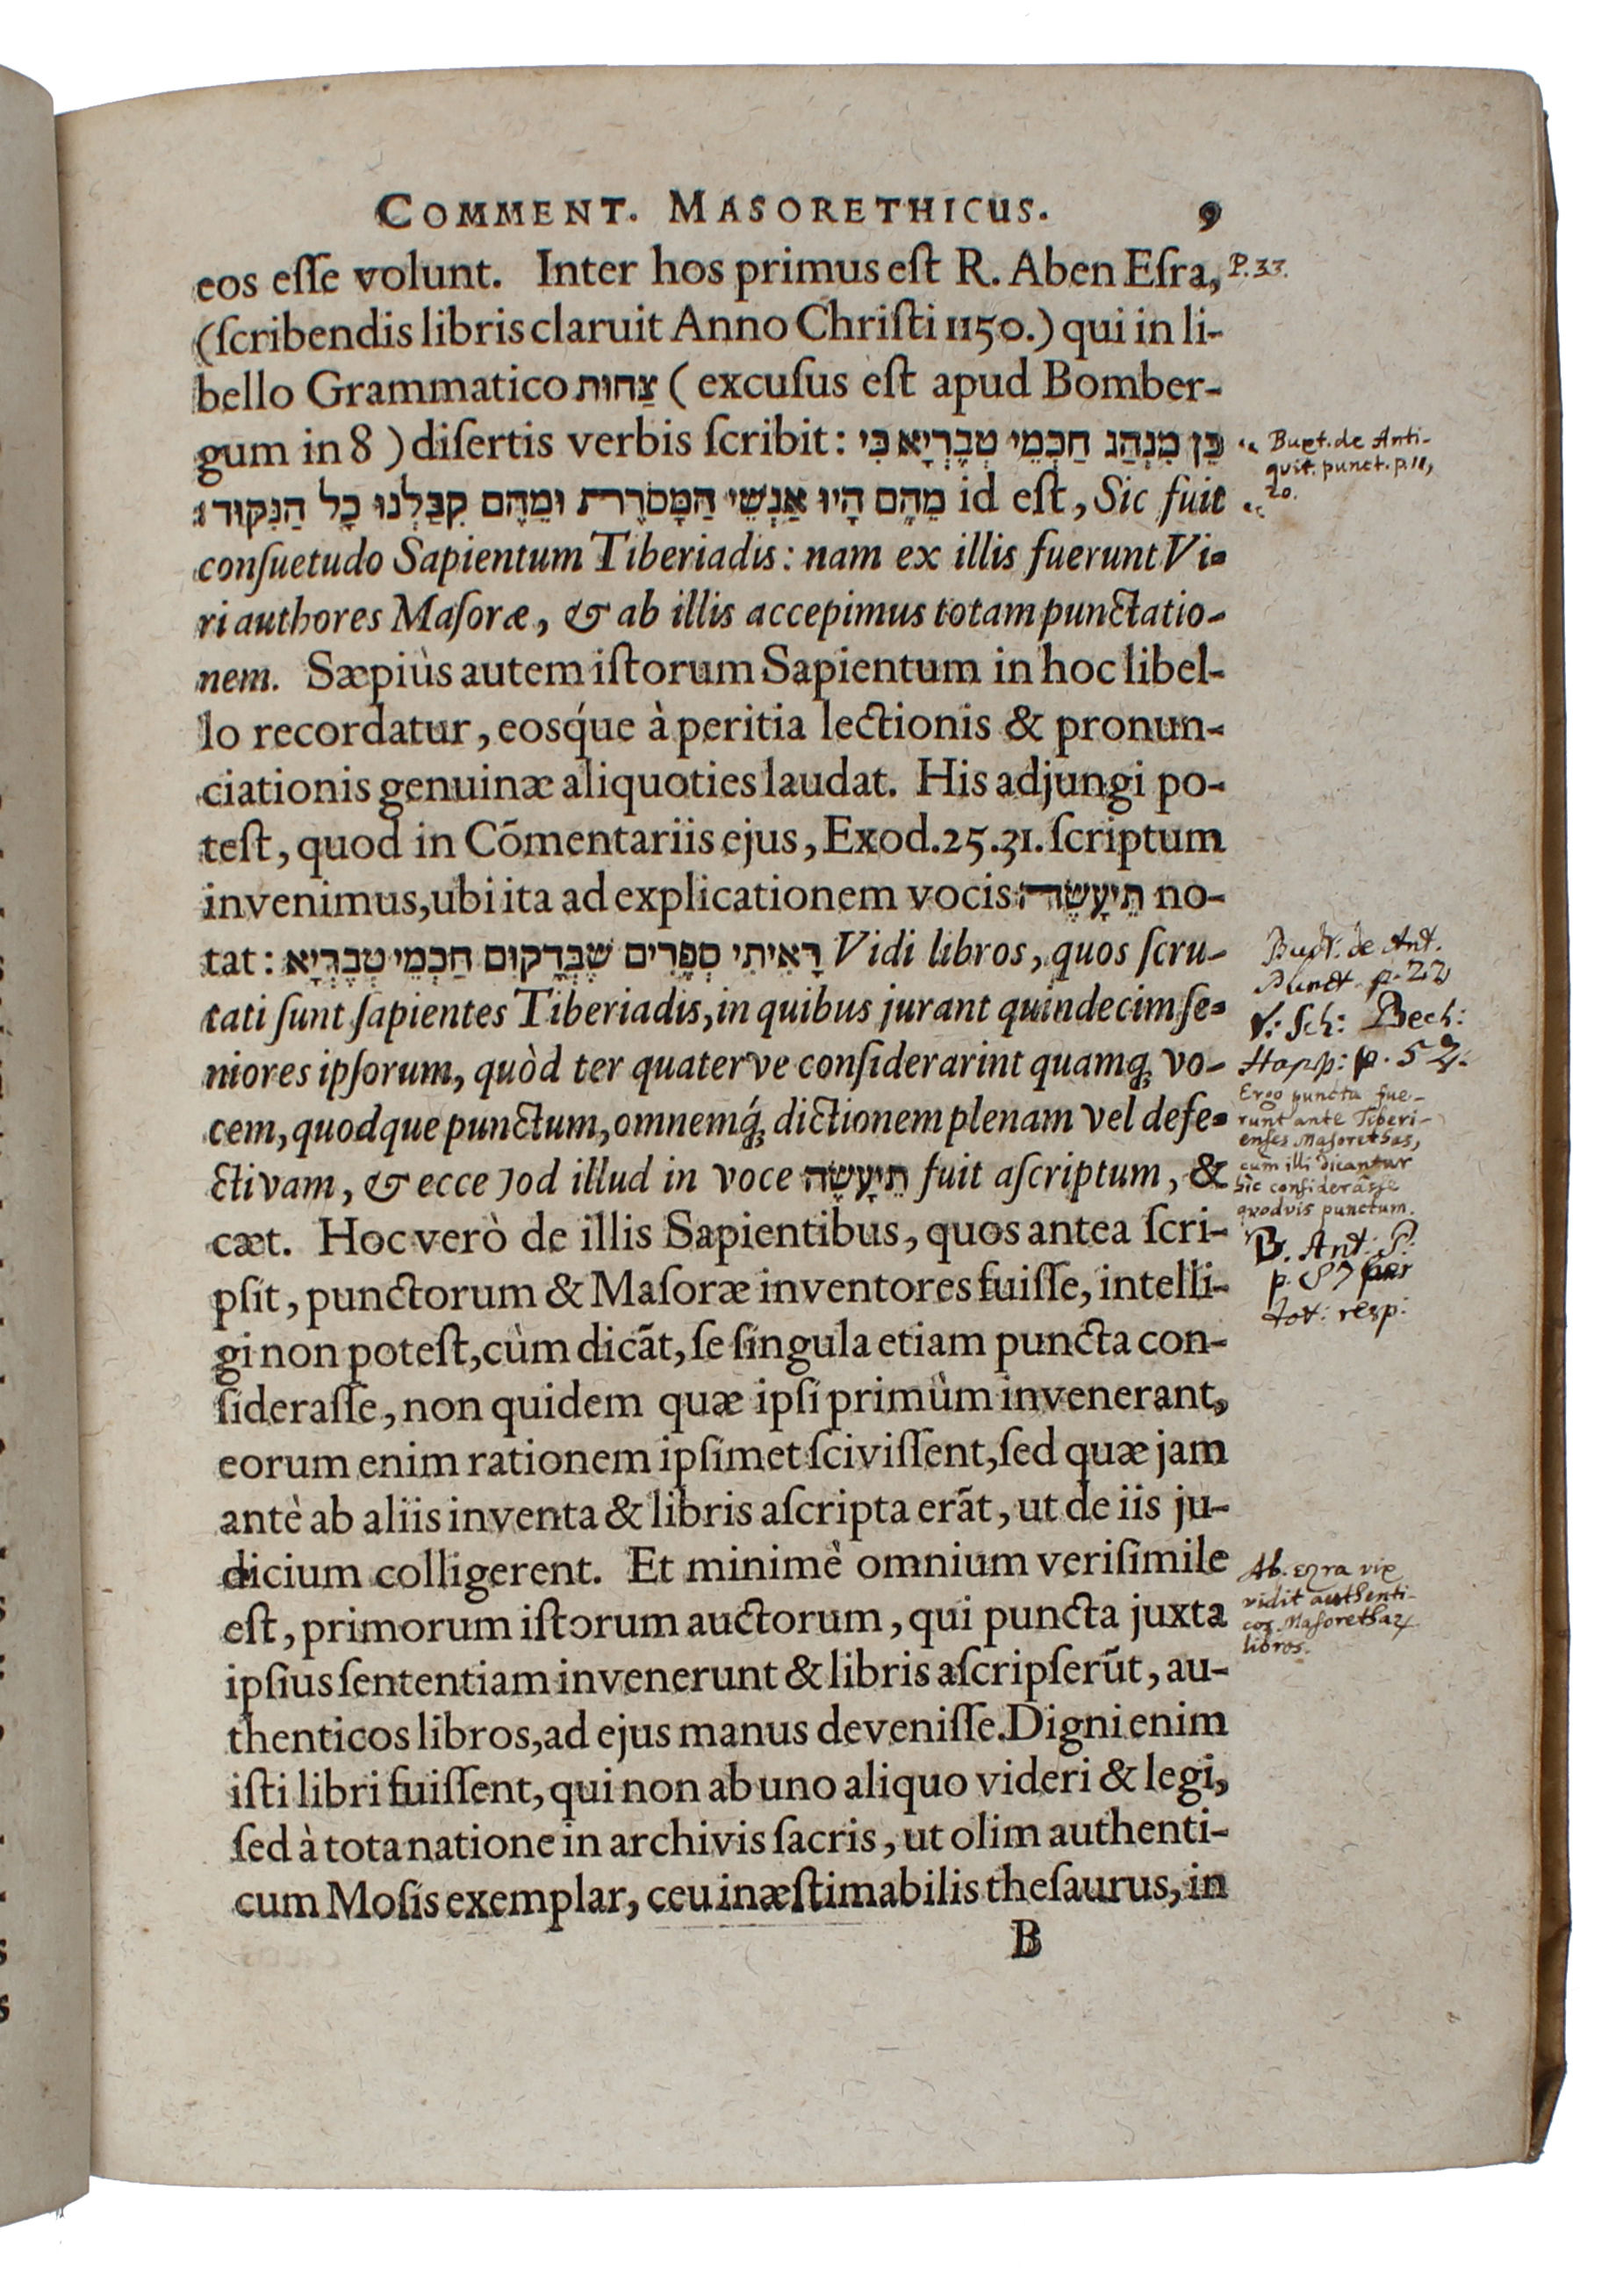 COMMENT. MASORETHICUS. 9
eos eſſe volunt. Inter hos primus eſt R. Aben Eſra,
(ſcribendis libris claruit Anno Chriſti 1150.) qui in li-
bello Grammatico צַחוּת ( excuſus eſt apud Bomber-
gum in 8 ) diſertis verbis ſcribit: כֵּן מִנְהַג חַכְמֵי טְבֶרְיָא כִּי
מֵהֶם הָיוּ אַנְשֵׁי הַמָּסֹרֶת וּמֵהֶם קִבַּלְנוּ כָל הַנִּקּוּד׃ id eſt, Sic fuit
conſuetudo Sapientum Tiberiadis: nam ex illis fuerunt Vi-
ri authores Maſoræ, & ab illis accepimus totam punctatio-
nem. Sæpiùs autem iſtorum Sapientum in hoc libel-
lo recordatur, eosq́ue à peritia lectionis & pronun-
ciationis genuinæ aliquoties laudat. His adjungi po-
teſt, quod in Cõmentariis ejus, Exod. 25. 31. ſcriptum
invenimus, ubi ita ad explicationem vocis תֵּיעָשֶׂה no-
tat: רָאִיתִי סְפָרִים שֶׁבְּדָקוּם חַכְמֵי טְבֶרְיָא Vidi libros, quos ſcru-
tati ſunt ſapientes Tiberiadis, in quibus jurant quindecim ſe-
niores ipſorum, quòd ter quaterve conſiderarint quamq; vo-
cem, quodque punctum, omnemq́; dictionem plenam vel defe-
ctivam, & ecce Jod illud in voce תֵּיעָשֶׂה fuit aſcriptum, &
cæt. Hoc verò de illis Sapientibus, quos antea ſcri-
pſit, punctorum & Maſoræ inventores fuiſſe, intelli-
gi non poteſt, cùm dicãt, ſe ſingula etiam puncta con-
ſideraſſe, non quidem quæ ipſi primùm invenerant,
eorum enim rationem ipſimet ſciviſſent, ſed quæ jam
antè ab aliis inventa & libris aſcripta erãt, ut de iis ju-
dicium colligerent. Et minimè omnium veriſimile
eſt, primorum iſtorum auctorum, qui puncta juxta
ipſius ſententiam invenerunt & libris aſcripſerũt, au-
thenticos libros, ad ejus manus deveniſſe. Digni enim
iſti libri fuiſſent, qui non ab uno aliquo videri & legi,
ſed à tota natione in archivis ſacris, ut olim authenti-
cum Moſis exemplar, ceu inæſtimabilis theſaurus, in
B
P. 33.
Buxt. de Anti-
quit. punct. p. 11,
20.
Buxt. de Ant.
Punct. p. 22
V. Sch: Bech:
Happ: p. 52.
Ergo puncta fue-
runt ante Tiberi-
enses Masorethas,
cum illi dicantur
sic considerasse
quodvis punctum.
B. Ant: P.
p. 87
resp:
Ab. Ezra vix
vidit authenti-
cos Masoretharum
libros.